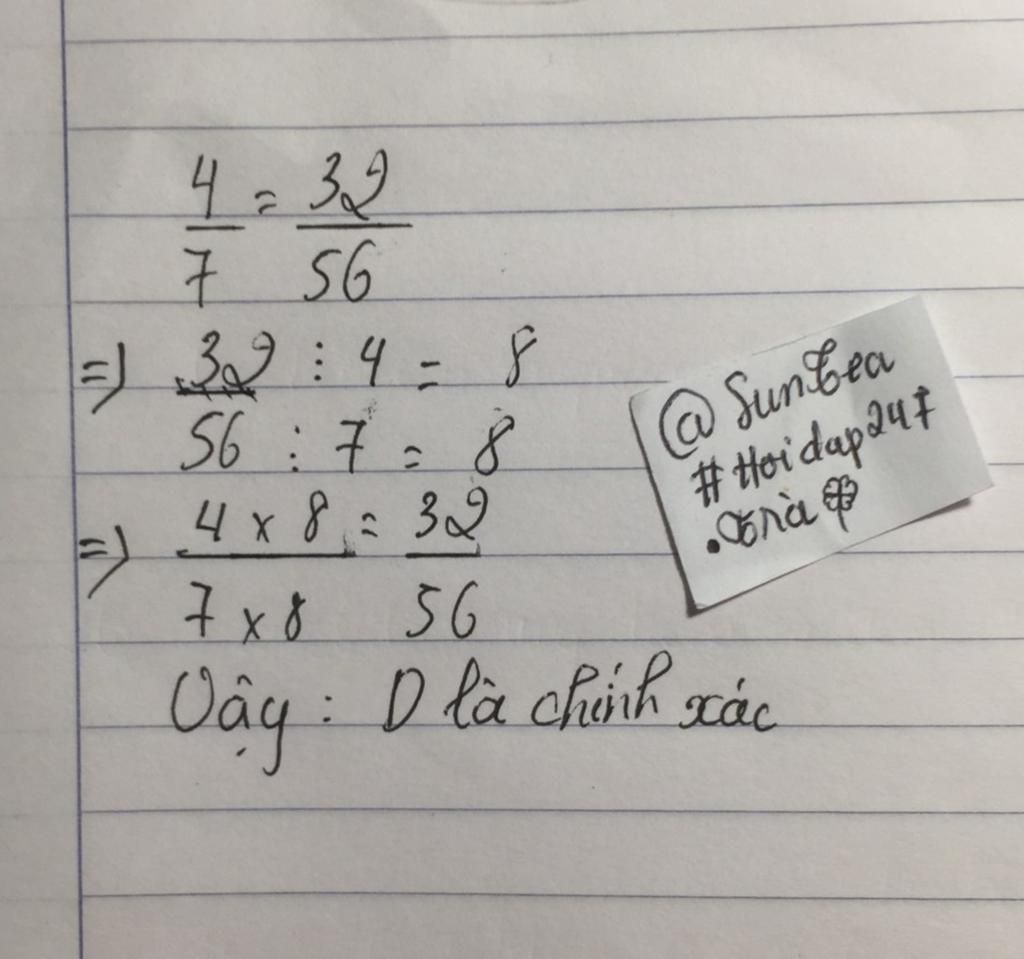 4/7 = 32/56
=) 32 : 4 = 8
56 : 7 = 8
=) 4 x 8 / 7 x 8 = 32/56
Vậy : D là chính xác
@Suntea
#Hoidap247